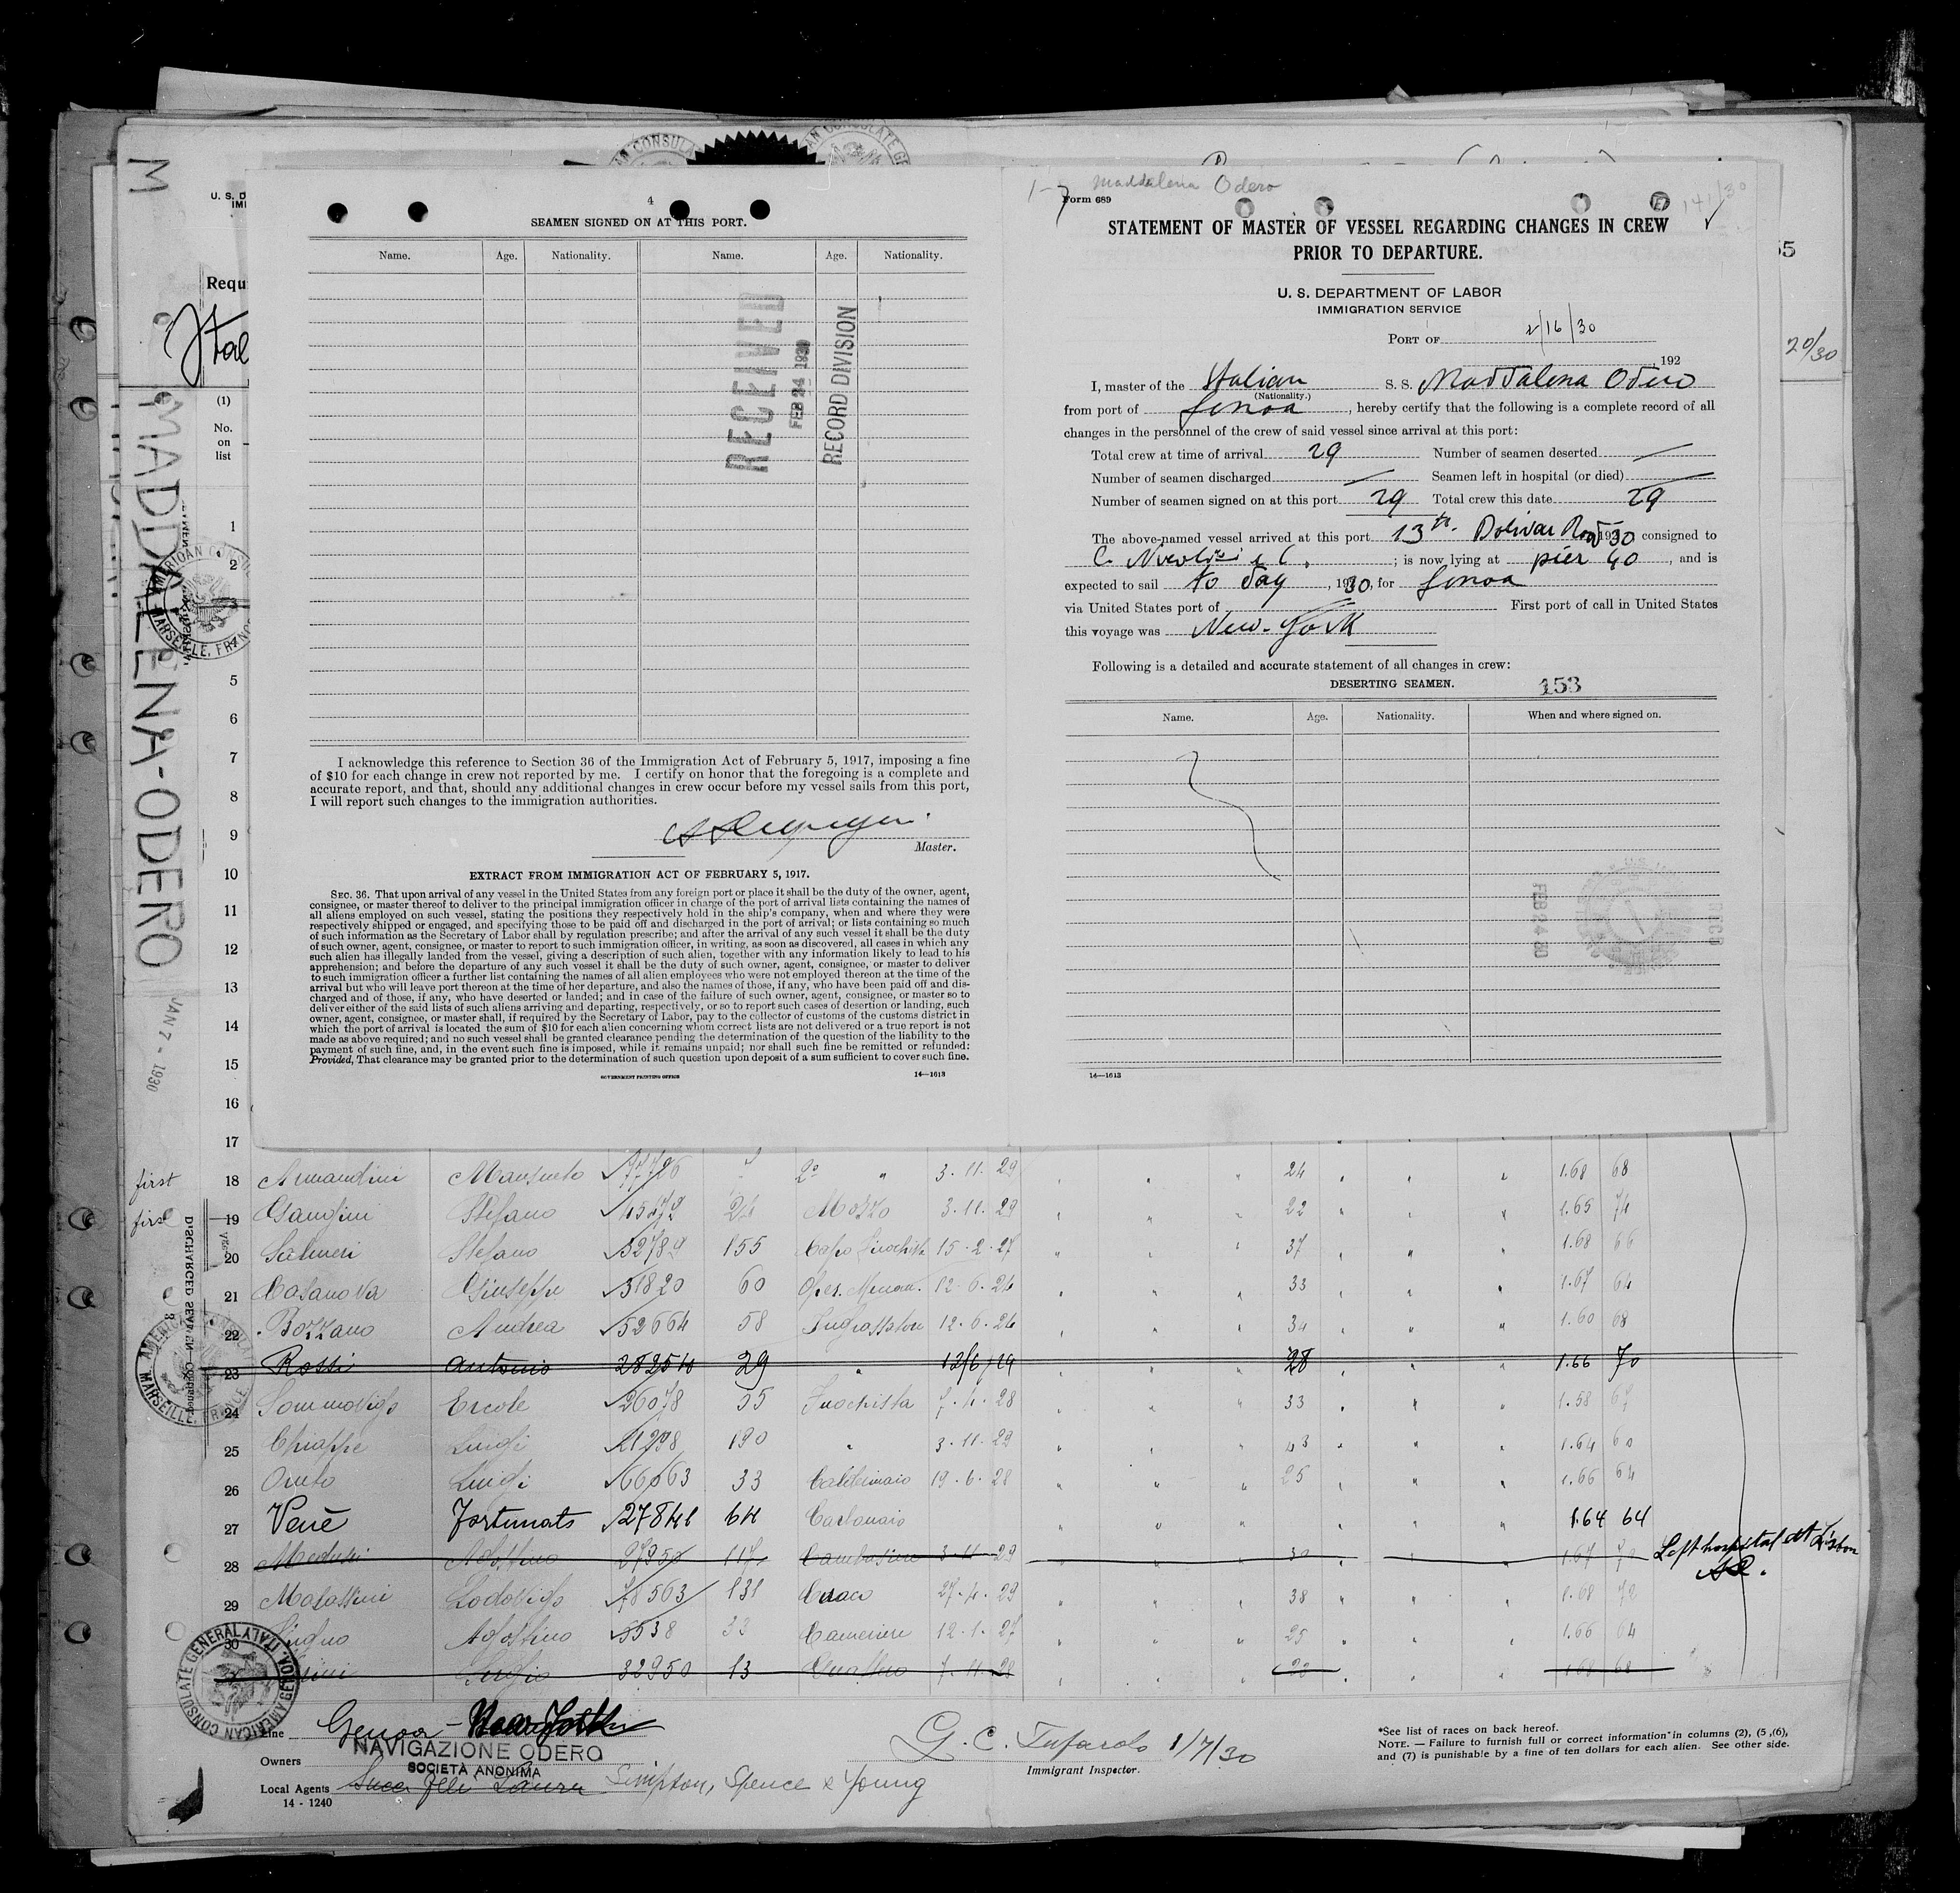 M
U. S. D
IMI
Requ
Ital
(1)
No.
on
list
MADDALENA-ODERO
JAN 7 - 1930
1
2
3
4
5
6
7
8
9
10
11
12
13
14
15
16
17
4
SEAMEN SIGNED ON AT THIS PORT.
Name. Age. Nationality. Name. Age. Nationality.
RECEIVED
FEB 24 1930
RECORD DIVISION
I acknowledge this reference to Section 36 of the Immigration Act of February 5, 1917, imposing a fine
of $10 for each change in crew not reported by me. I certify on honor that the foregoing is a complete and
accurate report, and that, should any additional changes in crew occur before my vessel sails from this port,
I will report such changes to the immigration authorities.
Master.
EXTRACT FROM IMMIGRATION ACT OF FEBRUARY 5, 1917.
SEC. 36. That upon arrival of any vessel in the United States from any foreign port or place it shall be the duty of the owner, agent,
consignee, or master thereof to deliver to the principal immigration officer in charge of the port of arrival lists containing the names of
all aliens employed on such vessel, stating the positions they respectively hold in the ship's company, when and where they were
respectively shipped or engaged, and specifying those to be paid off and discharged in the port of arrival; or lists containing so much
of such information as the Secretary of Labor shall by regulation prescribe; and after the arrival of any such vessel it shall be the duty
of such owner, agent, consignee, or master to report to such immigration officer, in writing, as soon as discovered, all cases in which any
such alien has illegally landed from the vessel, giving a description of such alien, together with any information likely to lead to his
apprehension; and before the departure of any such vessel it shall be the duty of such owner, agent, consignee, or master to deliver
to such immigration officer a further list containing the names of all alien employees who were not employed thereon at the time of the
arrival but who will leave port thereon at the time of her departure, and also the names of those, if any, who have been paid off and dis-
charged and of those, if any, who have deserted or landed; and in case of the failure of such owner, agent, consignee, or master so to
deliver either of the said lists of such aliens arriving and departing, respectively, or so to report such cases of desertion or landing, such
owner, agent, consignee, or master shall, if required by the Secretary of Labor, pay to the collector of customs of the customs district in
which the port of arrival is located the sum of $10 for each alien concerning whom correct lists are not delivered or a true report is not
made as above required; and no such vessel shall be granted clearance pending the determination of the question of the liability to the
payment of such fine, and, in the event such fine is imposed, while it remains unpaid; nor shall such fine be remitted or refunded:
Provided, That clearance may be granted prior to the determination of such question upon deposit of a sum sufficient to cover such fine.
GOVERNMENT PRINTING OFFICE 14—1613
1-7 Maddalena Odero
Form 689
141/30
STATEMENT OF MASTER OF VESSEL REGARDING CHANGES IN CREW
PRIOR TO DEPARTURE.
U. S. DEPARTMENT OF LABOR
IMMIGRATION SERVICE
PORT OF 2/16/30
, 192
I, master of the Italian S. S. Maddalena Odero
(Nationality.)
from port of Genoa, hereby certify that the following is a complete record of all
changes in the personnel of the crew of said vessel since arrival at this port:
Total crew at time of arrival 29 Number of seamen deserted
Number of seamen discharged Seamen left in hospital (or died)
Number of seamen signed on at this port 29 Total crew this date 29
The above-named vessel arrived at this port 13th. Bolivar Road 1930 consigned to
; is now lying at pier 40, and is
expected to sail to day, 1930, for Genoa
via United States port of First port of call in United States
this voyage was New-York
Following is a detailed and accurate statement of all changes in crew:
DESERTING SEAMEN. 153
Name. Age. Nationality. When and where signed on.
FEB 24 30
14—1613
20/30
first 18 Armandini Mansueto 77726 2º " 3.11.29 24 1.68 68
first 19 Gandini Stefano 24 Mozzo 3.11.29 22 1.65 74
20 Salmeri Stefano 32789 155 Capo Fuochista 15.2.27 37 1.68 66
21 Casanova Giuseppe 31820 60 12.6.24 33 1.67 64
22 Bozzano Andrea 52664 58 Ingrassatore 12.6.24 34 1.60 68
23 Rossi Antonio 29 " 28 1.66 70
24 Sommovigo Ercole 26078 55 Fuochista 7.4.28 33 1.58 67
25 Chiappe Luigi 190 " 3.11.29 43 1.64 60
26 Oneto Luigi 66063 33 19.6.28 25 1.66 64
27 Venè Fortunato 27841 64 Carbonaio 1.64 64
28 Agostino 27950 117 3.11.29 30 1.67 70 Left hospital at Lisbon
29 Lodovigo 78563 131 Cuoco 27.4.29 38 1.68 72
30 Agostino 5538 33 Cameriere 12.1.27 25 1.66 64
32950 13 7.11.28 23 1.68 68
DISCHARGED SEAMEN
AMERICAN CONSULATE
MARSEILLE, FRANCE
AMERICAN CONSULATE GENERAL
GENOA, ITALY
Line Genoa - New York
Owners NAVIGAZIONE ODERO
SOCIETÀ ANONIMA
Local Agents Simpson, Spence & Young
14 - 1240
G. C. Tufarolo 1/7/30
Immigrant Inspector.
*See list of races on back hereof.
NOTE. — Failure to furnish full or correct information in columns (2), (5, (6),
and (7) is punishable by a fine of ten dollars for each alien. See other side.